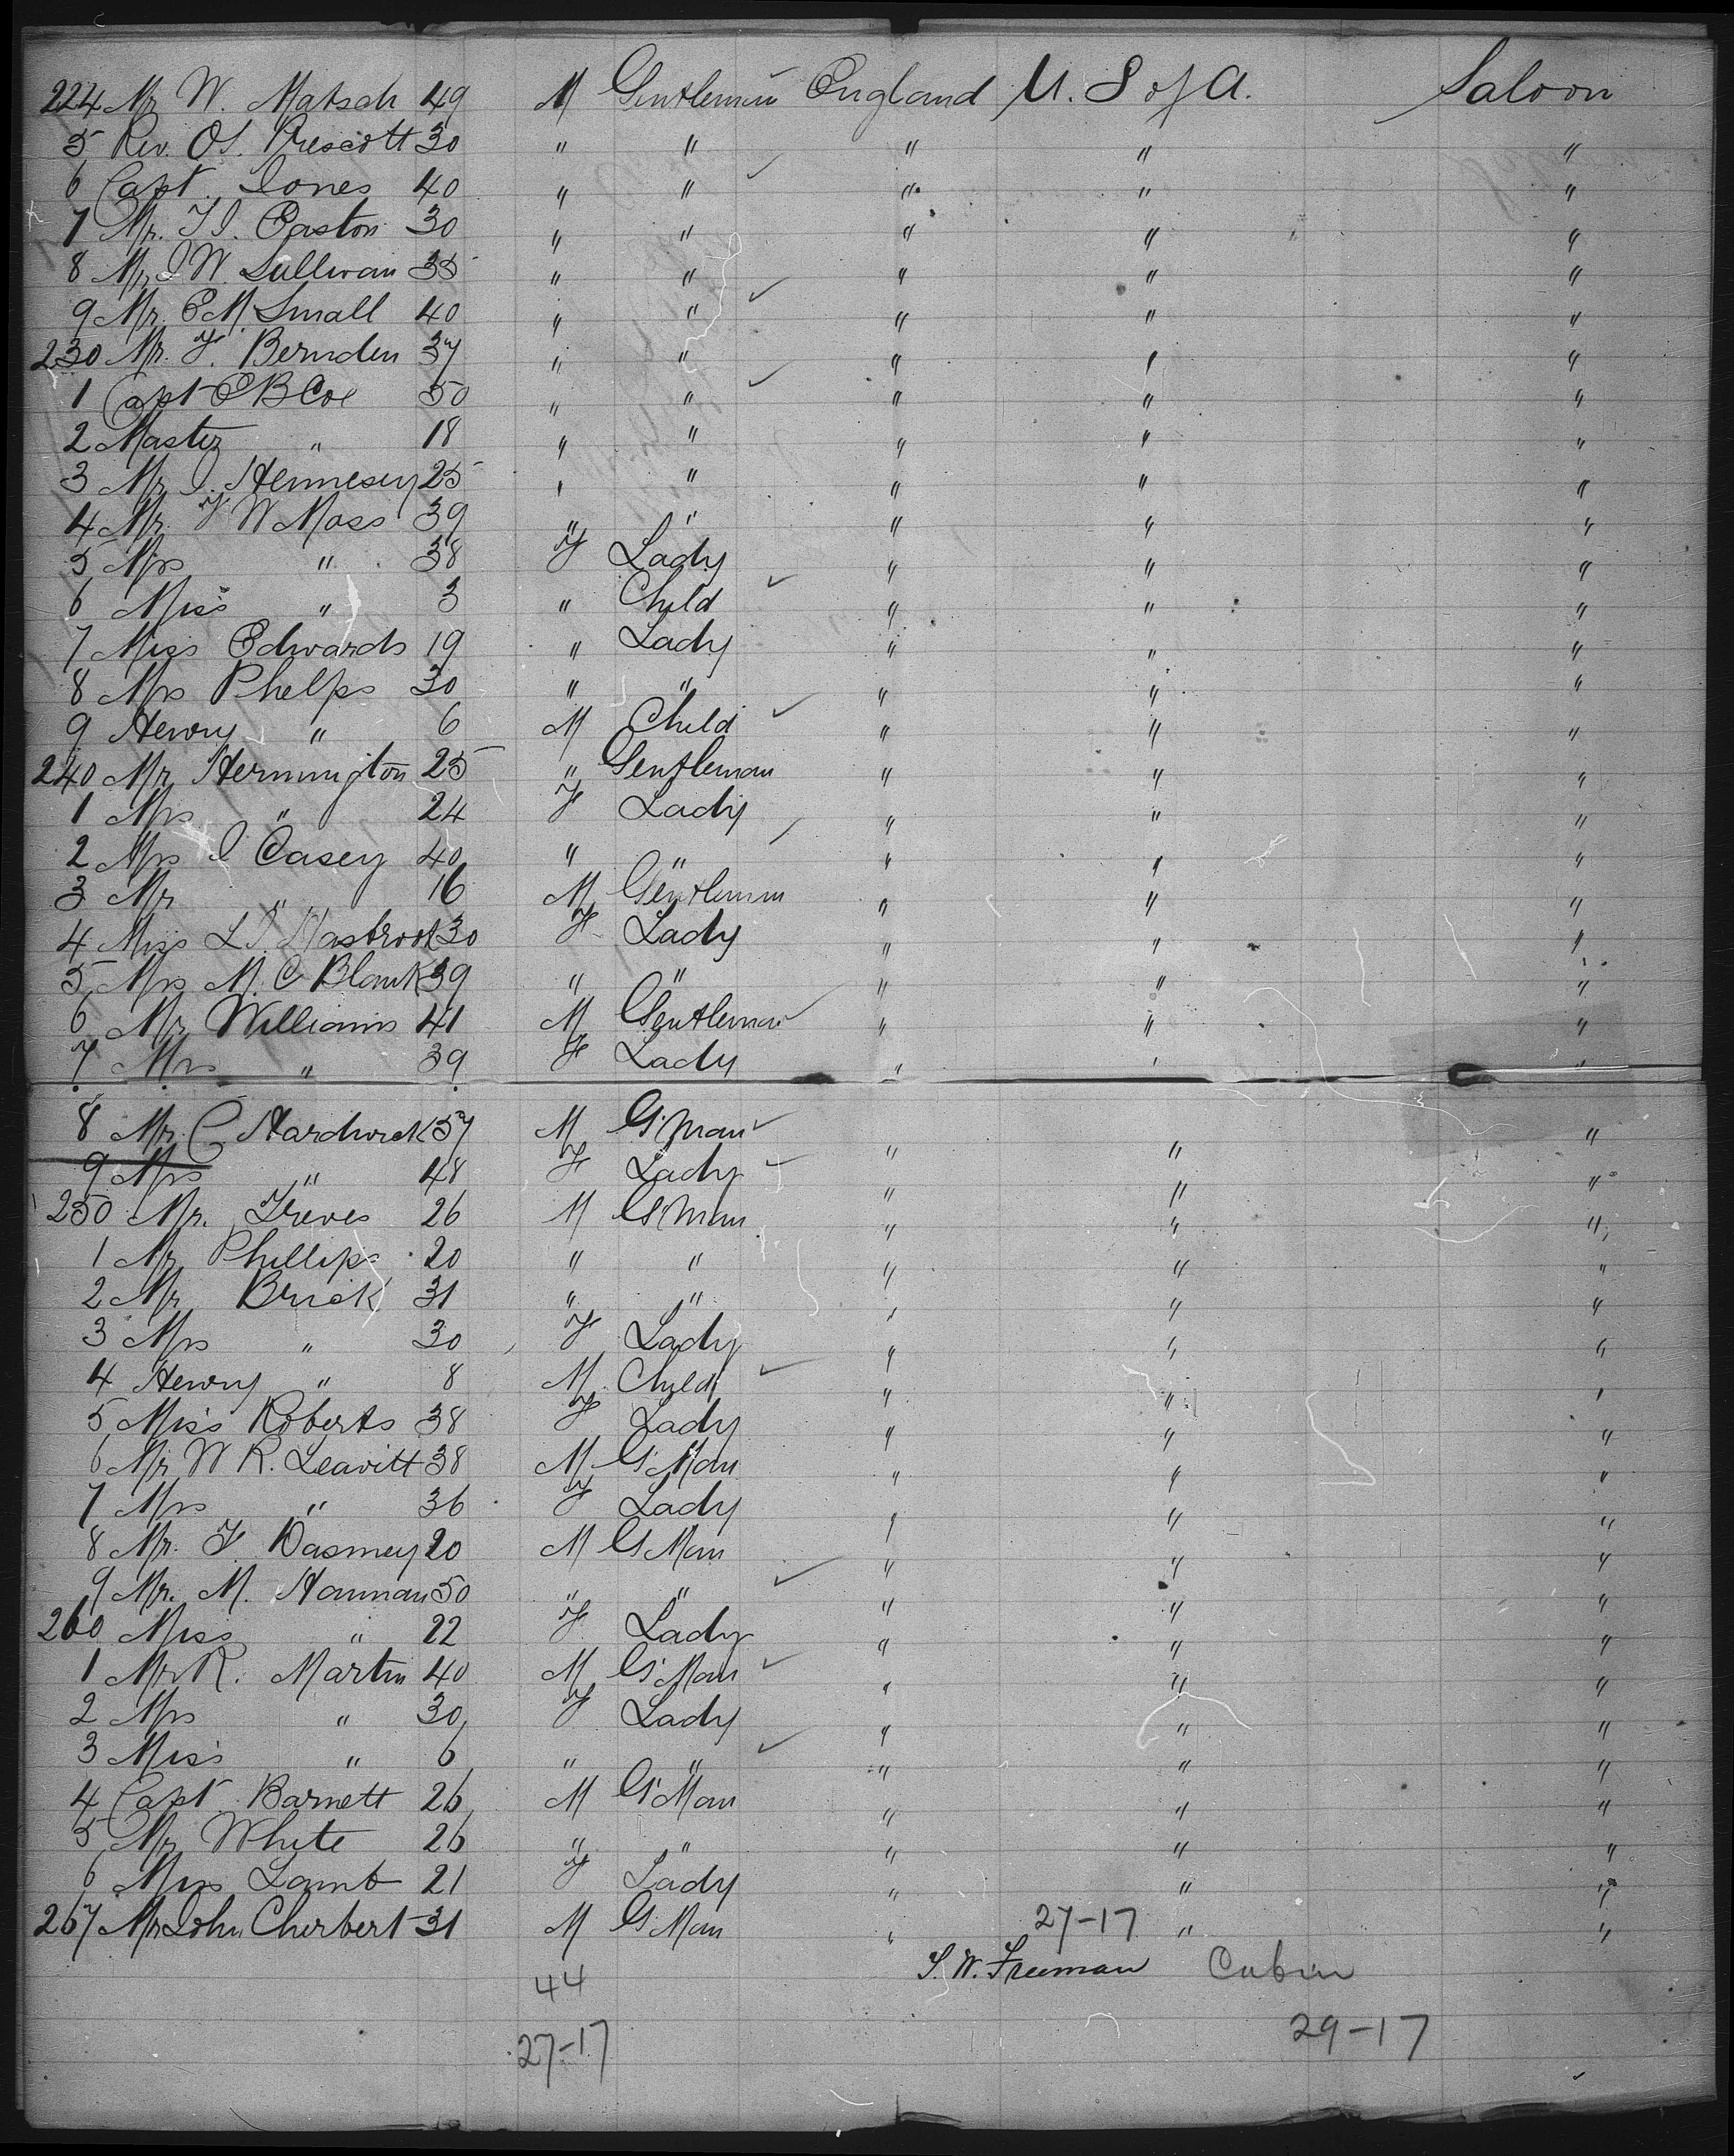 224 Mr W. Matsch 49 M Gentleman England U. S of A. Saloon
5 Rev. O.S. Prescott 30 " " " " "
6 Capt. Jones 40 " " " " "
7 Mr. T I. Easton 30 " " " " "
8 Mr J W. Sullivan 35 " " " " "
9 Mr. E M Small 40 " " " " "
230 Mr. F. Bernden 37 " " " " "
1 Capt E B Coe 50 " " " " "
2 Master " 18 " " " " "
3 Mr J. Hennesey 25 " " " " "
4 Mr. F W Moss 39 " " " " "
5 Mrs " 38 F Lady " " "
6 Miss " 3 " Child " " "
7 Miss Edwards 19 " Lady " " "
8 Mrs Phelps 30 " " " " "
9 Henry " 6 M Child " " "
240 Mr Hermington 25 " Gentleman " " "
1 Mrs " 24 F Lady " " "
2 Mrs J Casey 40 " " " " "
3 Mr " 16 M Gentleman " " "
4 Miss L J. Hasbrook 30 F Lady " " "
5 Mrs M. C Blank 39 " " " " "
6 Mr Williams 41 M Gentleman " " "
7 Mrs " 39 F Lady " " "
8 Mr. C Hardwick 57 M G'man " " "
9 Mrs " 48 F Lady " " "
250 Mr. Treves 26 M G'man " " "
1 Mr Phillips 20 " " " " "
2 Mr Brick 31 " " " " "
3 Mrs " 30 F Lady " " "
4 Henry " 8 M Child " " "
5 Miss Roberts 38 F Lady " " "
6 Mr W R. Leavitt 38 M G'Man " " "
7 Mrs " 36 F Lady " " "
8 Mr. F. Dasmey 20 M G'Man " " "
9 Mr. M. Hannan 50 " " " " "
260 Miss " 22 F Lady " " "
1 Mr R. Martin 40 M G'Man " " "
2 Mrs " 30 F Lady " " "
3 Miss " 6 " " " " "
4 Capt Barnett 26 M G'Man " " "
5 Mr White 26 " " " " "
6 Miss Lamb 21 F Lady " " "
267 Mr John Cherbert 31 M G'Man " 27-17 " "
S. W. Freeman Cabin
44
27-17 29-17